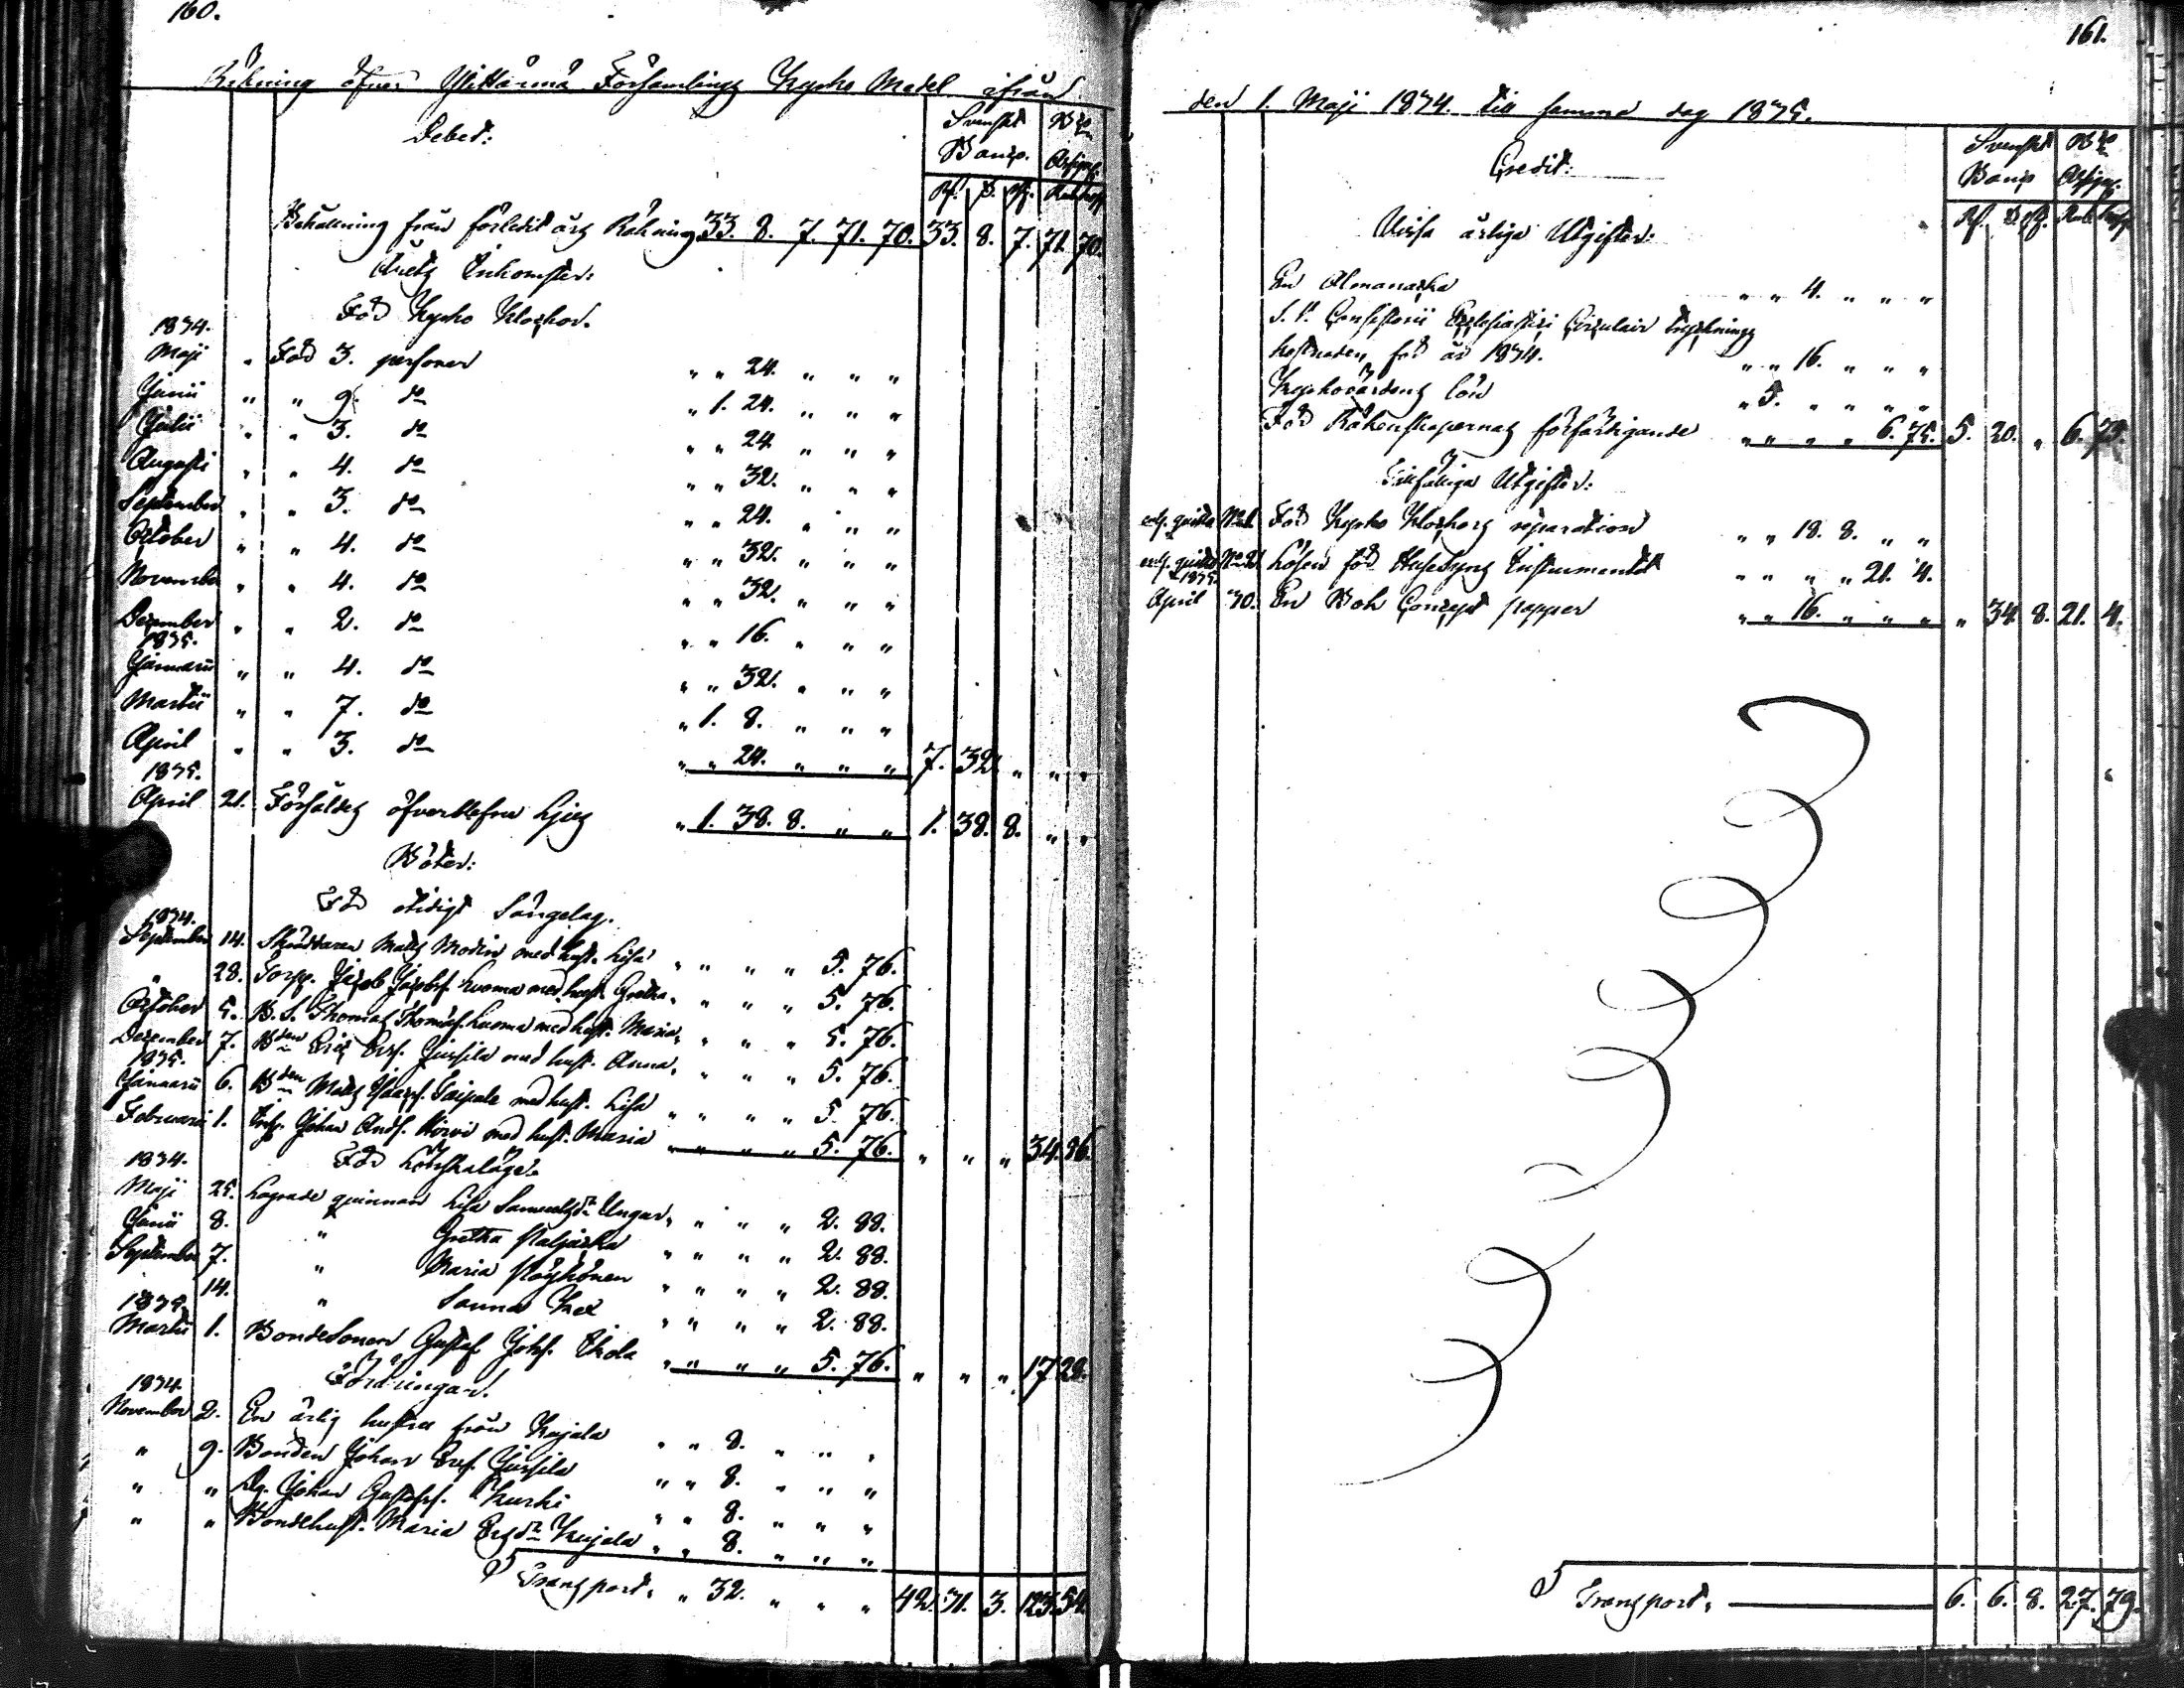 160.
Räkning öfver Ylistarånå Församlings Kyrko Medel ifrån
Debet:
Svenskt Banco. Bco Assign.
Rd. s. rst. Rub. kop.
Behållning från förledit års Räkning 33. 8. 7. 71. 70. 33. 8. 7. 71. 70.
Årets Inkomster:
För Kyrko Klockor.
1834.
Maji " För 3. personer " " 24. " " "
Junii " " 9. do " 1. 24. " " "
Julii " " 3. do " " 24. " " "
Augusti " " 4. do " " 32. " " "
September " " 3. do " " 24. " " "
October " " 4. do " " 32. " " "
November " " 4. do " " 32. " " "
December " " 2. do " " 16. " " "
1835.
Januarii " " 4. do " " 32. " " "
Martii " " 7. do " 1. 8. " " "
April " " 3. do " " 24. " " " 7. 32. " " "
1835.
April 21. Försåldes öfverblefne Ljus " 1. 38. 8. " " 1. 38. 8. " "
Böter:
För otidigt Sängelag.
1834.
September 14. Skräddaren Matts Modin med hust. Lisa " " " " 5. 76.
" 28. Torp. Jacob Jacobss. Luoma med hust. Gretha " " " " 5. 76.
October 5. B. S. Thomas Thomass. Luoma med hust. Maria " " " " 5. 76.
December 7. Bden Eric Ers. Jussila med hust. Anna " " " " 5. 76.
1835.
Januarii 6. Bden Matts Isacs. Taipale med hust. Lisa " " " " 5. 76.
Februarii 1. Inh. Johan Ands. Hirvi med hust. Maria " " " " 5. 76. " " " 34. 56.
För Lönskaläge.
1834.
Maji 25. Lägrade quinnan Lisa Samuelsdr Ungar " " " " 2. 88.
Junii 8. " Gretha " " " " 2. 88.
September 7. " Maria " " " " 2. 88.
14. " Sanna " " " " 2. 88.
1835.
Martii 1. Bondesonen Gustaf Johs. Ikola " " " " 5. 76. " " " 17. 28.
Föräringar.
1834.
November 2. En ärlig hustru från Kujala " " 8. " " "
" 9. Bonden Johan Ers. Jussila " " 8. " " "
" " Dg. Johan Gustafs. Kurki " " 8. " " "
" " Bondehust. Maria Ersdr Kujala " " 8. " " "
Transport. " 32. " " " 42. 31. 3. 123. 54.
161.
den 1. Maji 1834. till samma dag 1835.
Credit:
Svenskt Banco Bco Assign.
Rd. s. rst. Rub. kop.
Vissa årliga Utgifter:
En Almanacka " " 4. " " "
S. V. Consistorii Ecclesiastici Circulair trycknings
kostnaden för år 1834. " " 16. " " "
Kyrkovärdens lön " 5. " " " "
För Räkenskapernas författigande " " " " 6. 75. 5. 20. " 6. 75.
Tillfälliga Utgifter:
enl. quitto No 1. För Kyrko Klockors reparation " " 18. 8. " "
enl. quitto No 2. Lösen för Husesyns Instrumentet " " " " 21. 4.
1835.
April 30. En Bok Concept papper " " 16. " " " " 34. 8. 21. 4.
Transport. 6. 6. 8. 27. 79.